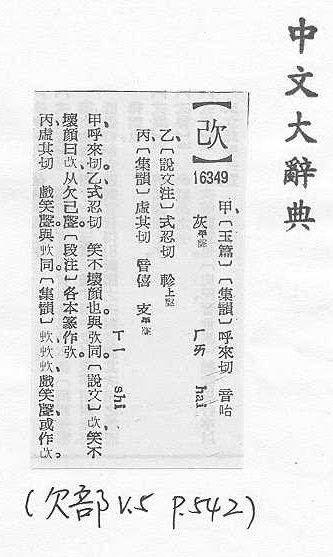 中文大辭典
【改】
16349
甲、〔玉篇〕〔集韻〕呼來切 音咍
灰平聲 ㄏㄞ hai
乙、〔說文注〕式忍切 軫上聲
丙、〔集韻〕虛其切 音僖 支平聲
ㄒㄧ shi
甲、呼來切。乙、式忍切 笑不壞顏也。與弞同。〔說文〕改、笑不
壞顏曰改、从欠己聲。〔段注〕各本篆作弞。
丙、虛其切 戲笑聲、與欪同。〔集韻〕欪、戲笑聲、或作改。
(欠部 V.5 P.542)